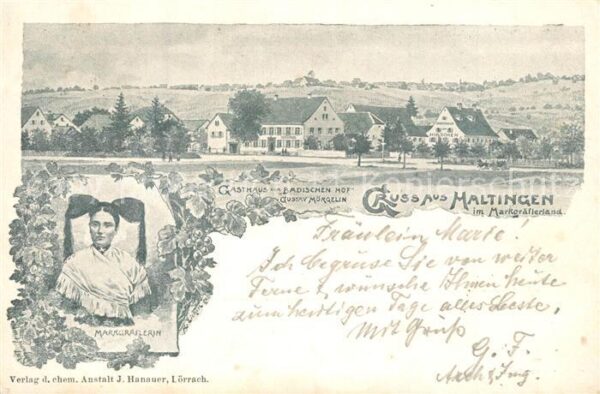 GASTHAUS ZUM "BADISCHEN HOF"
GUSTAV MÖRGELIN
GRUSS AUS HALTINGEN
im Markgräflerland.
Fräulein Marie!
Ich begrüse Sie von weiter
Ferne & wünsche Ihnen heute
zum heutigen Tage alles Beste,
Mit Gruß
G. F.
MARKGRÄFLERIN
Verlag d. chem. Anstalt J. Hanauer, Lörrach.